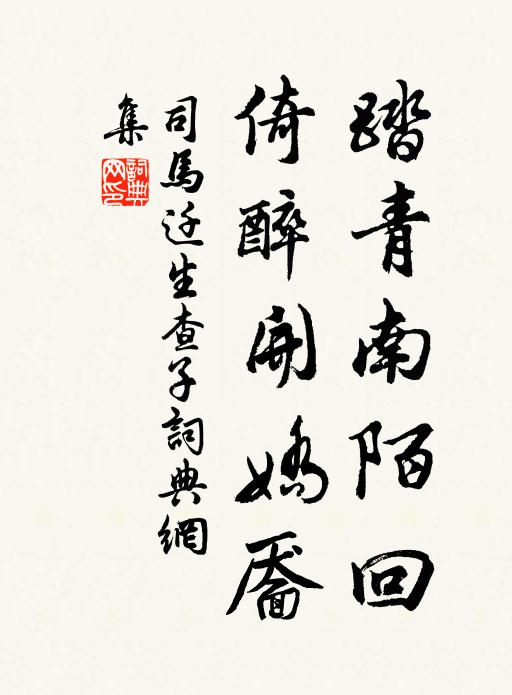 踏青南陌回
倚醉開嬌靨
司馬迁生查子詞典網
集
詞典
网印